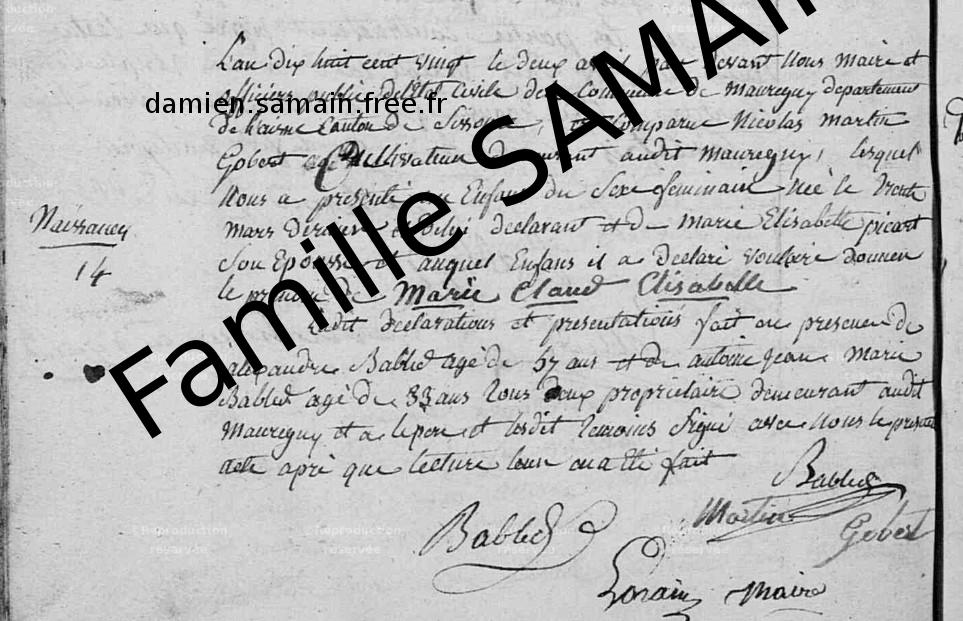 L'an dix huit cent vingt le deux avril par devant Nous Maire et
officier public de l'Etat Civile de la Commune de Mauregny departement
de l'aisne Canton de Sissonne, est Comparue Nicolas Martin
Gobert Cultivateur demeurant audit Mauregny, lesquel
Nous a presenté un Enfant du Sexe feminain Née le Trente
mars dernier de lui declarant et de marie Elisabette picart
Son Epousse et auquel Enfans il a declaré vouloire donner
le prenom de Marie Claud Elisabelle
Ledit declarations et presentations fait en presence de
alexandre Babled agé de 57 ans et de antoine jean Marie
Bablet agé de 33 ans tous deux proprietaire demeurant audit
Mauregny et a le pere et lesdit temoins Signé avec Nous le present
acte aprè que lecture leur en a été fait
Naissances
14
Babled
Babled
Martin
Gobert
Lorain Maire
damien.samain.free.fr
Famille SAMAIN
©Reproduction
réservée
©Reproduction
réservée
©Reproduction
réservée